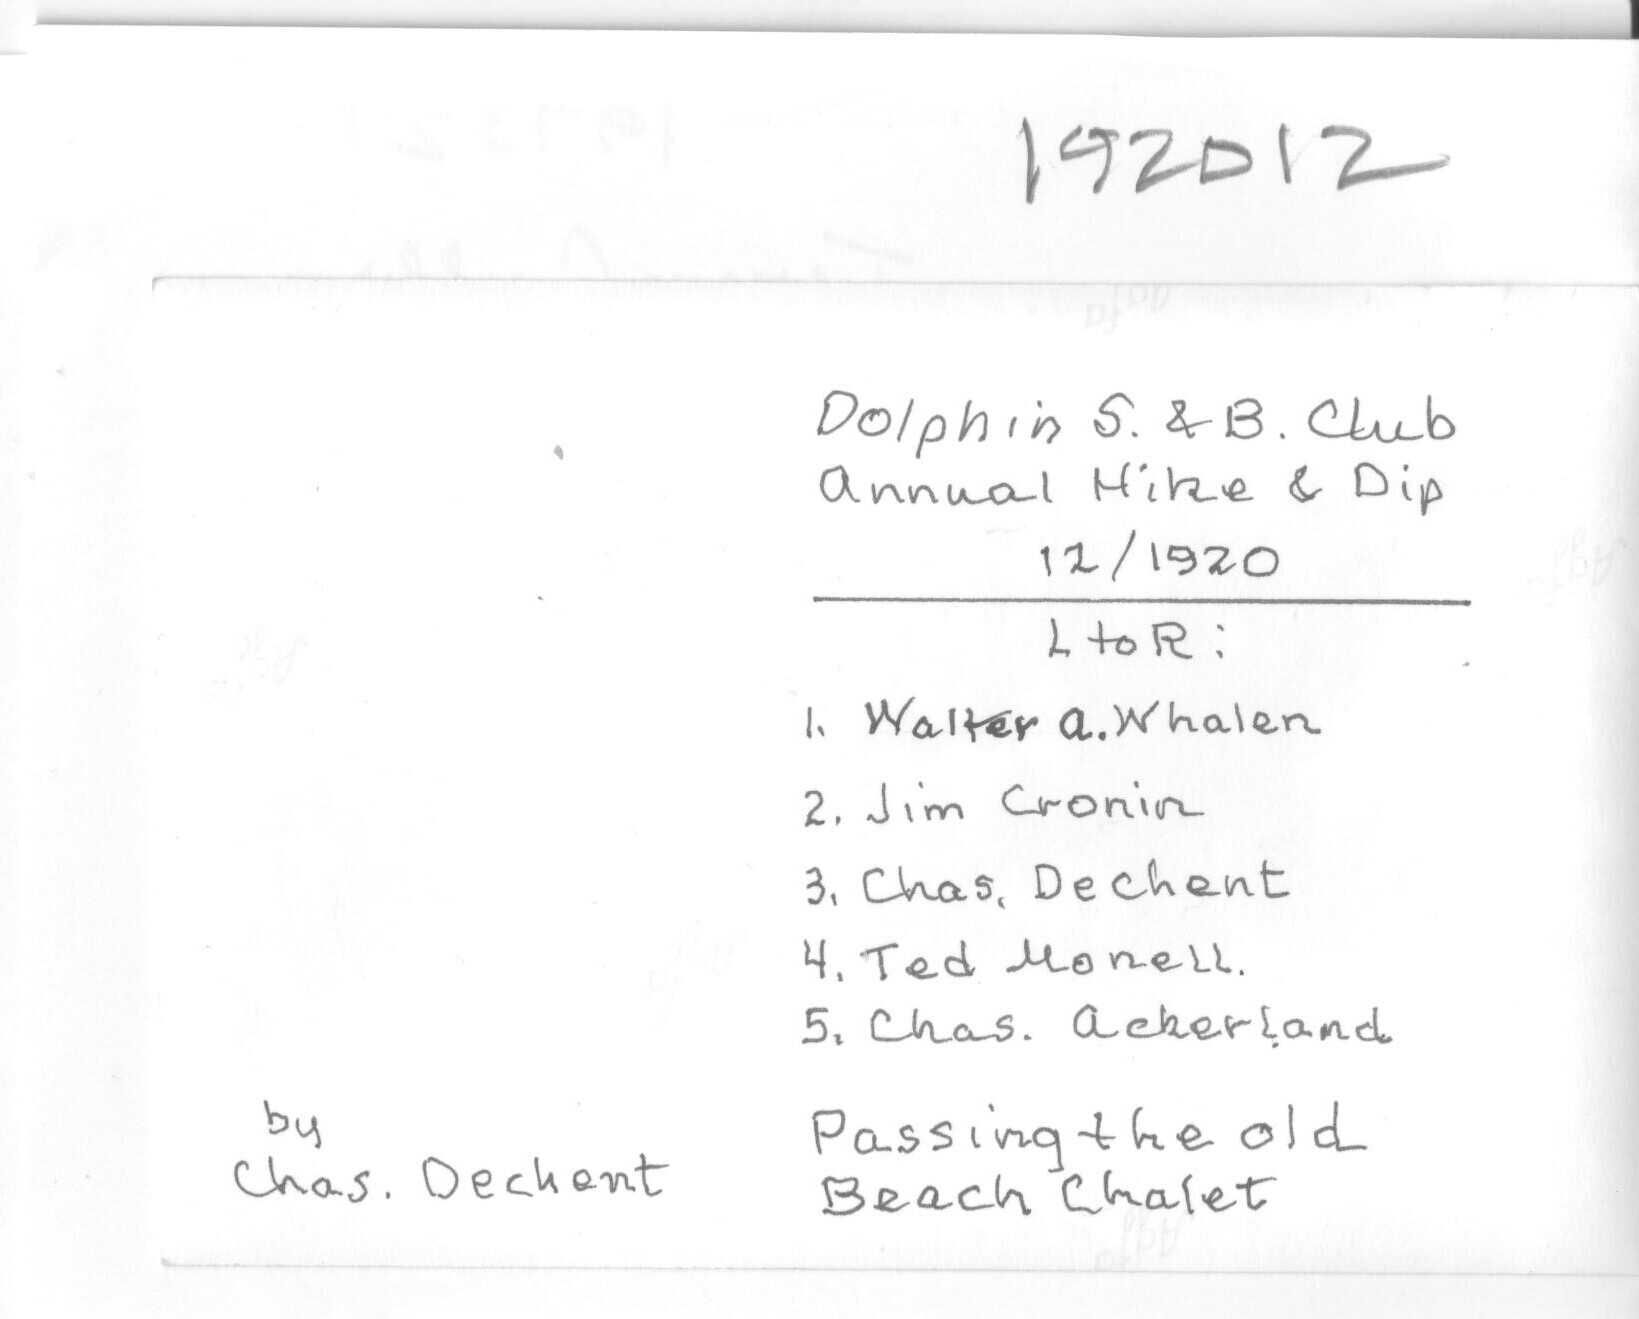 192012
Dolphin S. & B. Club
Annual Hike & Dip
12/1920
L to R:
1. Walter A. Whalen
2. Jim Cronin
3. Chas. Dechent
4. Ted Monell.
5. Chas. Ackerland
by
Chas. Dechent
Passing the old
Beach Chalet